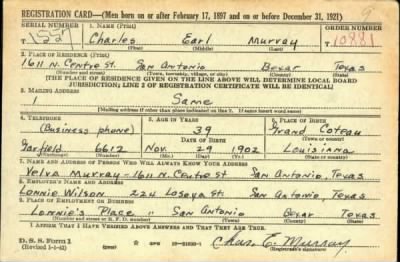 REGISTRATION CARD—(Men born on or after February 17, 1897 and on or before December 31, 1921)
SERIAL NUMBER 1. NAME (Print) ORDER NUMBER
Charles Earl Murray 10881
(First) (Middle) (Last)
2. PLACE OF RESIDENCE (Print)
1611 N. Centre St. San Antonio Bexar Texas
(Number and street) (Town, township, village, or city) (County) (State)
[THE PLACE OF RESIDENCE GIVEN ON THE LINE ABOVE WILL DETERMINE LOCAL BOARD
JURISDICTION; LINE 2 OF REGISTRATION CERTIFICATE WILL BE IDENTICAL]
3. MAILING ADDRESS
Same
[Mailing address if other than place indicated on line 2. If same insert word same]
4. TELEPHONE 5. AGE IN YEARS 6. PLACE OF BIRTH
(Business phone) 39 Grand Coteau
DATE OF BIRTH (Town or county)
Garfield 6612 Nov. 29 1902 Louisiana
(Exchange) (Number) (Mo.) (Day) (Yr.) (State or country)
7. NAME AND ADDRESS OF PERSON WHO WILL ALWAYS KNOW YOUR ADDRESS
Velva Murray - 1611 N. Centre St San Antonio, Texas
8. EMPLOYER'S NAME AND ADDRESS
Lonnie Wilson 224 Losoya St. San Antonio, Texas
9. PLACE OF EMPLOYMENT OR BUSINESS
Lonnie's Place San Antonio Bexar Texas
(Number and street or R. F. D. number) (Town) (County) (State)
I AFFIRM THAT I HAVE VERIFIED ABOVE ANSWERS AND THAT THEY ARE TRUE.
D. S. S. Form 1 GPO Chas. E. Murray
(Revised 1-1-42) (Registrant's signature)